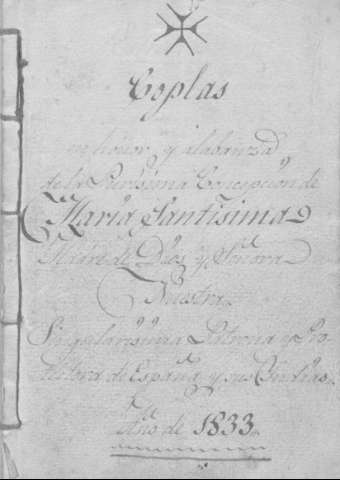 Coplas
en honor y alabanza
de la Purisima Concepcion de
Maria Santisima
Madre de Dios y Señora
Nuestra
Singularisima Patrona y Pro
tectora de España y sus Yndias.
Año de 1833.